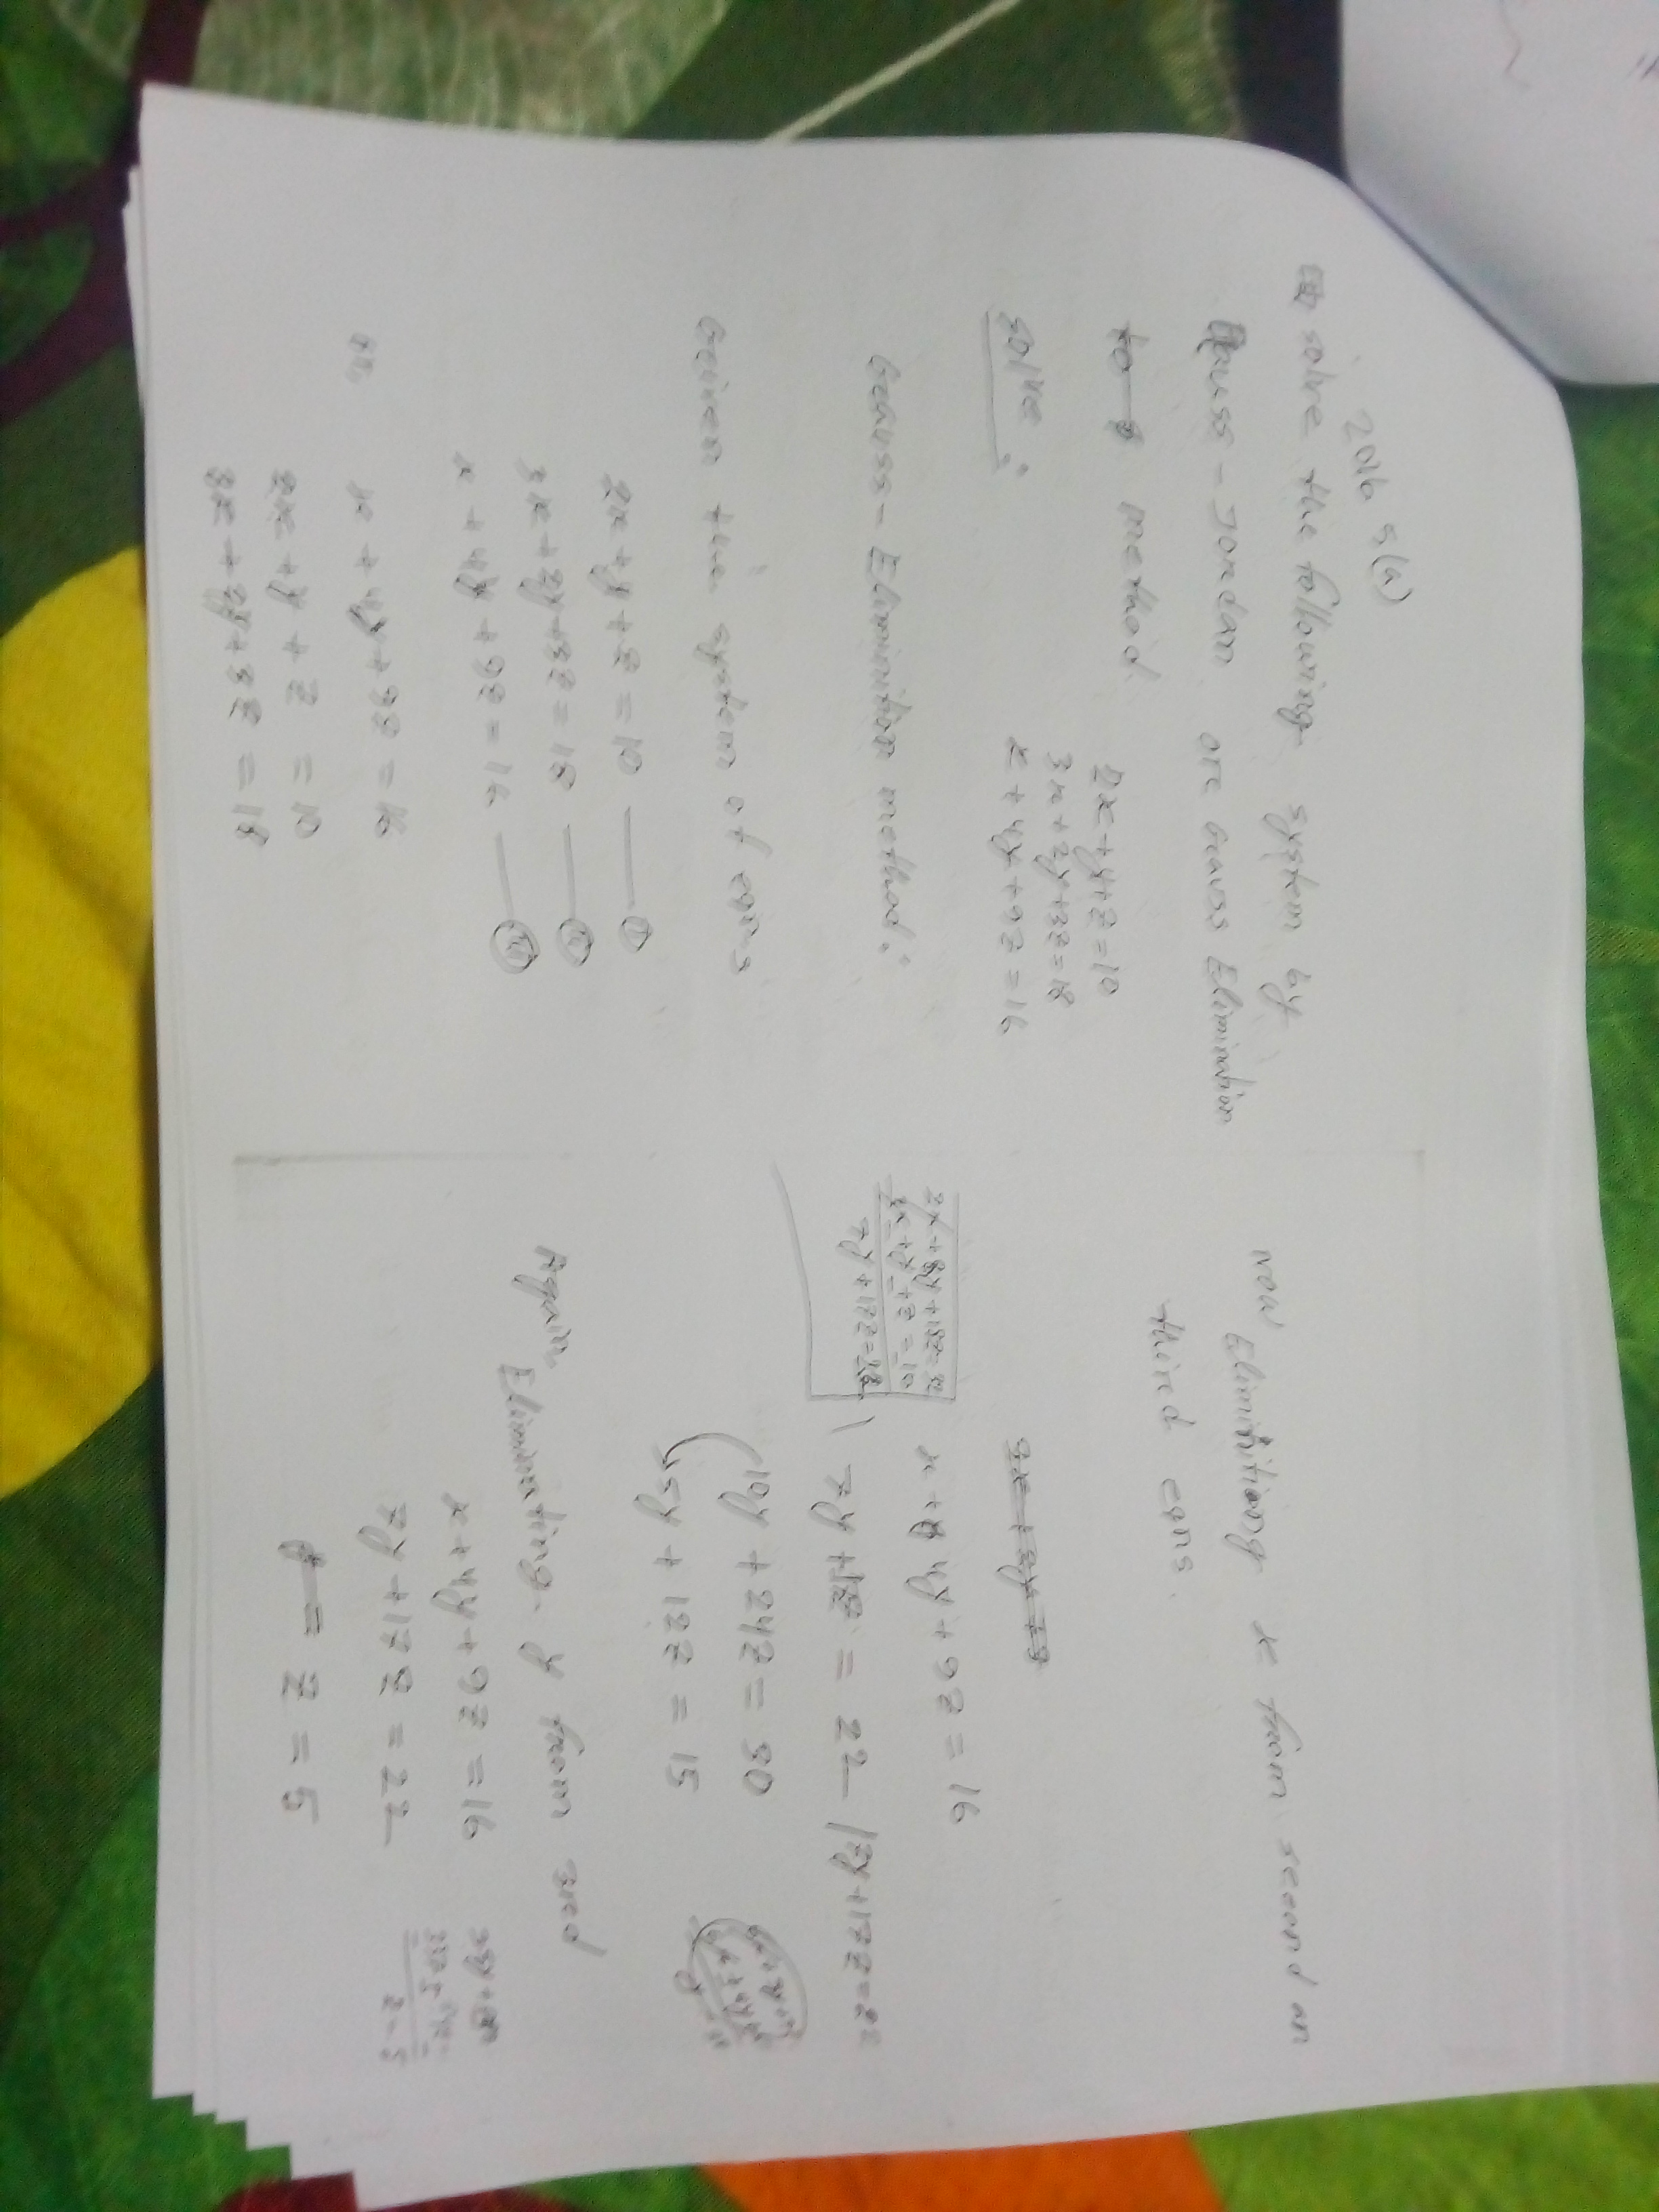 2016 5(a)
solve the following system by
Gauss - Jordan ore Geauss Elimination
method.
2x + y + z = 10
3x + 2y + 3z = 18
x + 4y + 9z = 16
solve :
Geauss - Eliminition method :
Geiven the system of eqns
2x + y + z = 10 —— (i)
3x + 2y + 3z = 18 —— (ii)
x + 4y + 9z = 16 —— (iii)
or, x + 4y + 9z = 16
2x + y + z = 10
3x + 2y + 3z = 18
Now Eliminitiong x from second an
third eqns.
x + 4y + 9z = 16
2x + 8y + 18z = 32
2x + y + z = 10
7y + 17z = 22
7y + 17z = 22 | 7y + 17z = 22
10y + 24z = 30
5y + 12z = 15
Again, Eliminating y from 3red
x + 4y + 9z = 16
7y + 17z = 22
z = 5